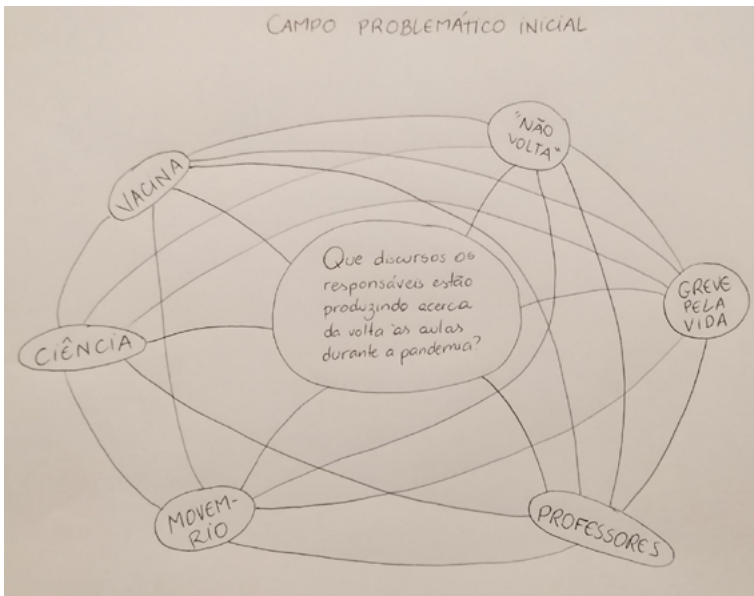 CAMPO PROBLEMÁTICO INICIAL
"NÃO
VOLTA"
VACINA
Que discursos os
responsáveis estão
produzindo acerca
da volta às aulas
durante a pandemia?
GREVE
PELA
VIDA
CIÊNCIA
MOVEM-
RIO
PROFESSORES